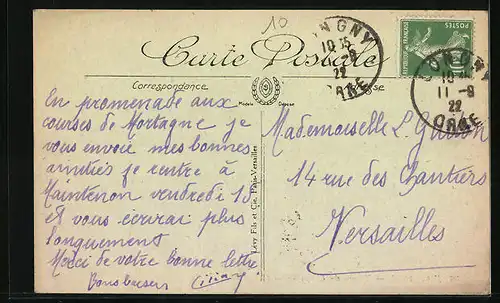 10
Carte Postale
Correspondance
LONGNY
10 35
11 -9
22
ORNE
LONGNY
10
11 -9
22
ORNE
POSTES
En promenade aux
courses de Mortagne je
vous envoie mes bonnes
amitiés je rentre à
Maintenon vendredi 15
et vous écrirai plus
longuement
Merci de votre bonne lettre
Bons baisers
Levy Fils et Cie, Paris-Versailles
Modèle Déposé
Mademoiselle L
14 rue des Chantiers
Versailles